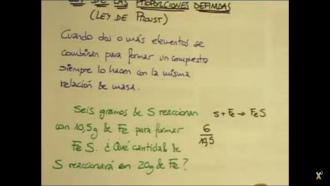 LEY DE LAS PROPORCIONES DEFINIDAS
(LEY DE PROUST)
Cuando dos o más elementos se
combinan para formar un compuesto
siempre lo hacen con la misma
relación de masa.
Seis gramos de S reaccionan
con 10,5g de Fe para formar
Fe S. ¿Qué cantidad de
S reaccionará en 20g de Fe?
S + Fe → FeS
6
10,5